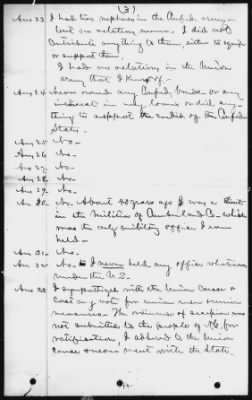 (3)
Ans 23. I had two nephews in the Confed. army—
but no relation more. I did not
contribute anything to them, either to equip
or support them.
I had no relation in the Union
army that I know of.
Ans 24 Never owned any Confed. bonds or any
interest in any loans or did any-
thing to support the credit of the Confed
States.
Ans 25 No—
Ans 26 No—
Ans 27 No—
Ans 28 No—
Ans 29. No—
Ans 30. No. About 40 years ago I was a
in the Militia of Cumberland Co. which
was the only military office I ever
held—
Ans 31. No—
Ans 32 No— I never held any office whatsoever
under the U.S.
Ans 33 I sympathized with the Union cause &
cast my vote for union men &
measures. The ordinance of secession was
not submitted to the people of N.C. for
ratification. I adhered to the Union
cause & never went with the State.